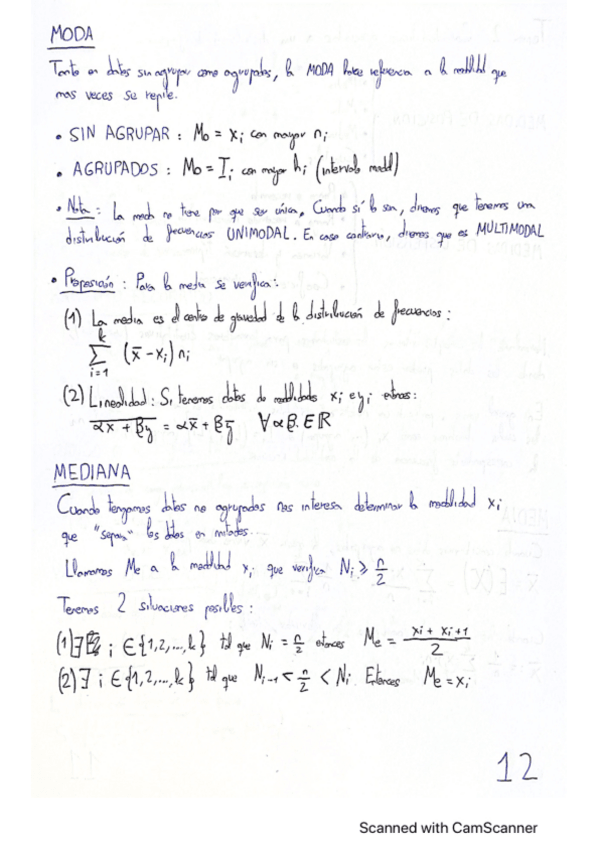 MODA
Tanto en datos sin agrupar como agrupados, la MODA hace referencia a la modalidad que
mas veces se repite.
• SIN AGRUPAR : Mo = xᵢ con mayor nᵢ
• AGRUPADOS : Mo = Iᵢ con mayor hᵢ (intervalo modal)
• Nota : La moda no tiene por que ser única. Cuando sí lo sea, diremos que tenemos una
distribución de frecuencias UNIMODAL. En caso contrario, diremos que es MULTIMODAL
• Proposición : Para la media se verifica :
(1) La media es el centro de gravedad de la distribución de frecuencias :
k
∑ (x̄ - xᵢ) nᵢ
i=1
(2) Linealidad : Si tenemos datos de modalidades xᵢ e yᵢ entonces:
\overline{αx + βy} = αx̄ + βȳ ∀ α, β ∈ ℝ
MEDIANA
Cuando tengamos datos no agrupados nos interesa determinar la modalidad xᵢ
que "separa" los datos en mitades.
Llamamos Me a la modalidad xᵢ que verifica Nᵢ ≥ n/2
Tenemos 2 situaciones posibles :
(1) ∃ i ∈ {1,2,...,k} tal que Nᵢ = n/2 entonces Me = (xi + xi+1)/2
(2) ∃ i ∈ {1,2,...,k} tal que Nᵢ₋₁ < n/2 < Nᵢ Entonces Me = xᵢ
12
Scanned with CamScanner